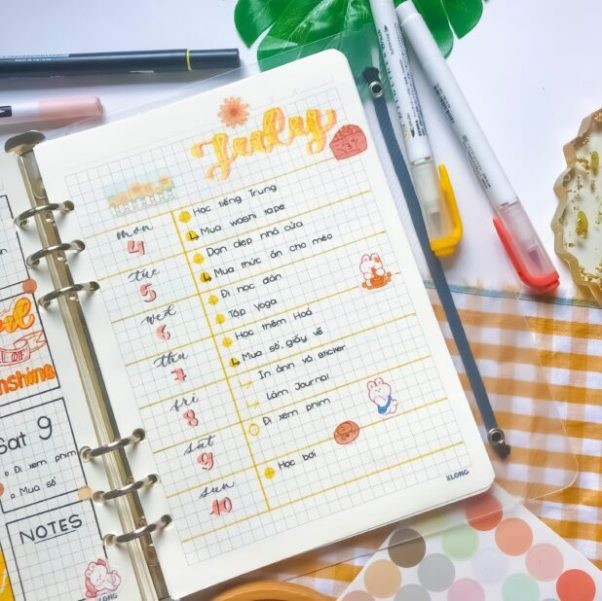 July
mon
4
Học tiếng Trung
Mua washi tape
tue
5
Dọn dẹp nhà cửa
Mua thức ăn cho mèo
wed
6
Đi học đàn
Tập Yoga
thu
7
Học thêm Hoá
Mua sổ, giấy vẽ
fri
8
In ảnh và sticker
Làm Journal
sat
9
Đi xem phim
sun
10
Học bơi
KLONG
Sat 9
Đi xem phim
Mua sổ
NOTES
KLONG